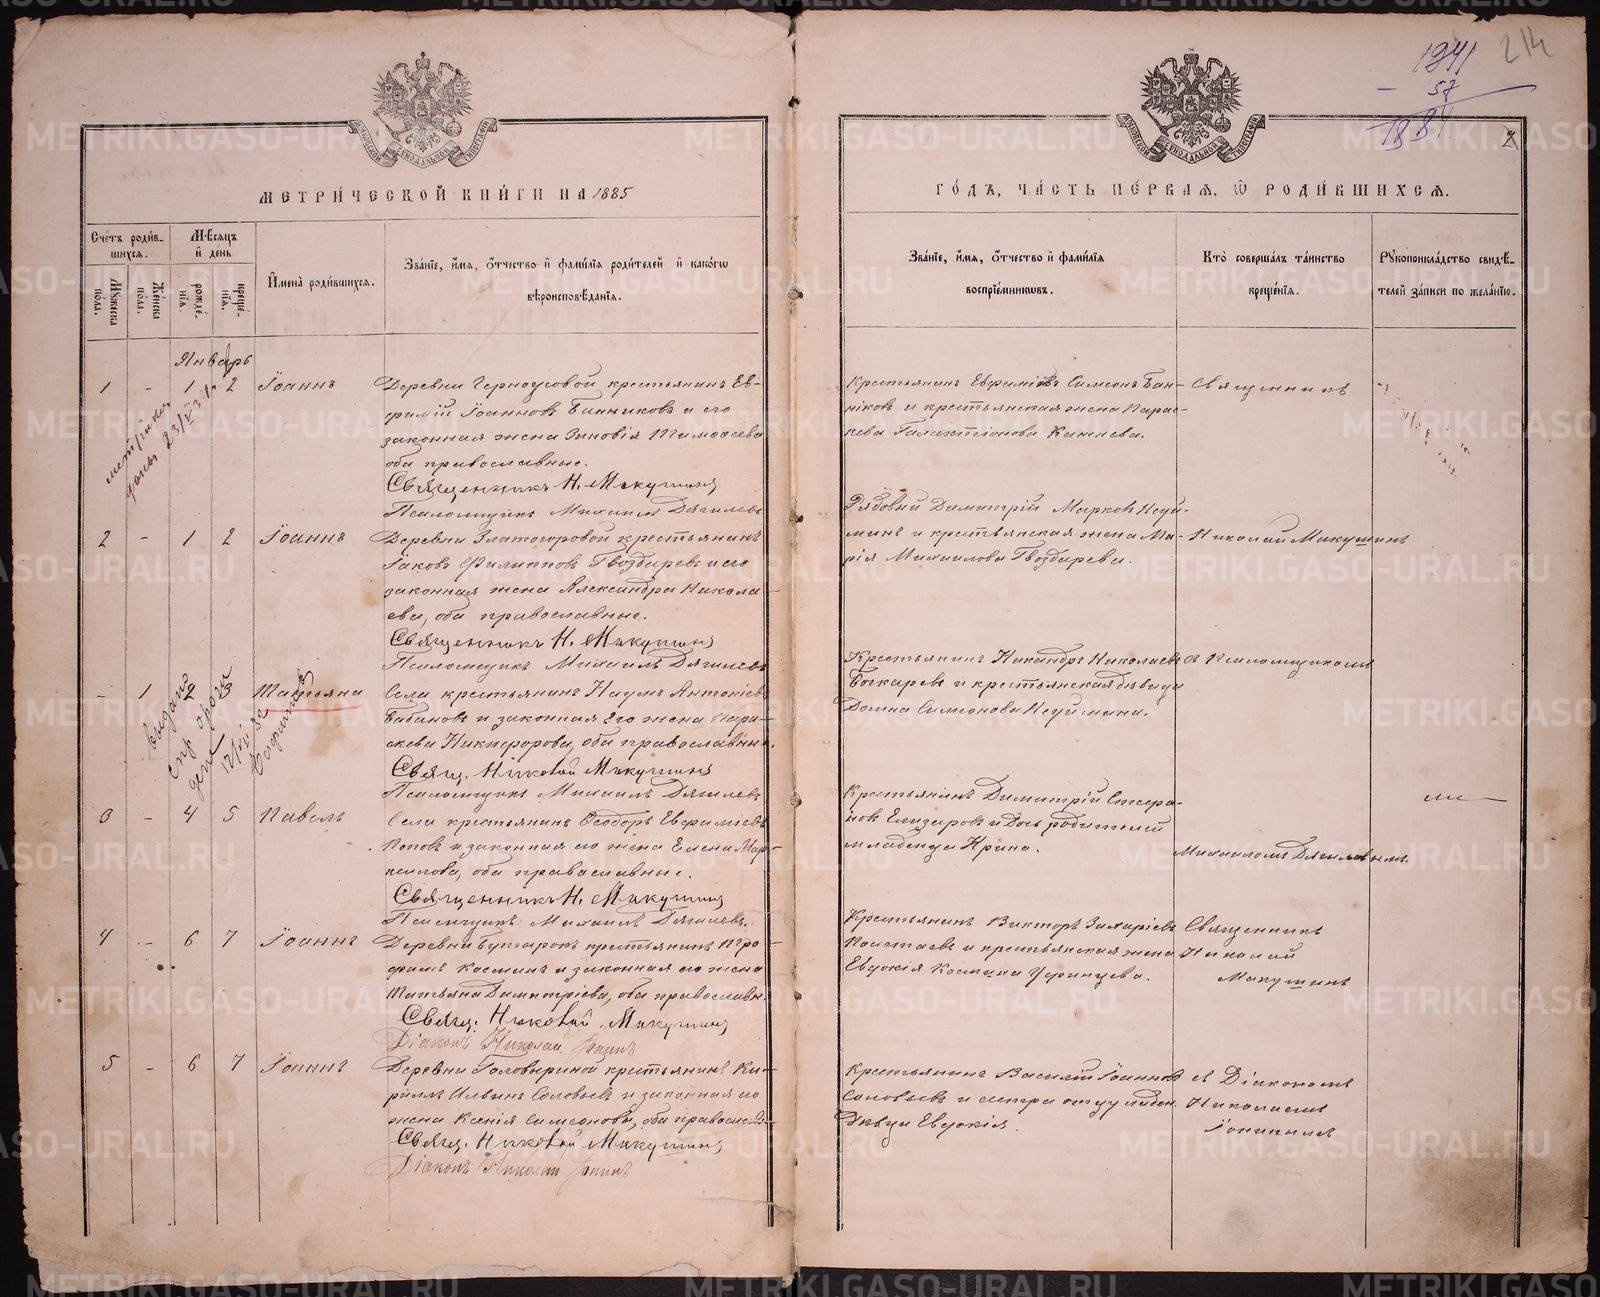 МЕТРИ́ЧЕСКОЙ КНИ́ГИ НА 1885
Сче́тъ роди́в-
шихся.
Мѣсяцъ
и̂ де́нь
Мꙋжеска по́ла.
Же́нска по́ла.
рожде́-
нїѧ.
креще́-
нїѧ.
И̂мена̀ роди́вшихсѧ.
Зва́нїе, и̂́мѧ, ѻ̂́тчество и̂ фами́лїѧ роди́телей и̂ како́гѡ
вѣроисповѣ́данїѧ.
Январь
1 - 1 2 Іоаннъ
Деревни Черноусовой крестьянинъ Ев-
фимій Іоанновъ Банниковъ и его
законная жена Зиновія Тимофеева
оба православные.
Священникъ Н. Макушинъ
Псаломщикъ Михаилъ Дягилевъ
2 - 1 2 Іоаннъ
Деревни Златогоровой крестьянинъ
Іаковъ Филипповъ Гвоздыревъ и его
законная жена Александра Никола-
ева, оба православные.
Священникъ Н. Макушинъ
Псаломщикъ Михаилъ Дягилевъ
- 1 2 3 Татьяна
Села крестьянинъ Наумъ Антоніевъ
Бабановъ и законная Его жена Пара-
скева Никифорова, оба православны.
Свящ. Николай Макушинъ
Псаломщикъ Михаилъ Дягилевъ
3 - 4 5 Павелъ
Села крестьянинъ Ѳеодоръ Евфиміевъ
Поповъ и законная его жена Елена Мар-
киллова, оба православные.
Священникъ Н. Макушинъ
Псаломщикъ Михаилъ Дягилевъ.
4 - 6 7 Іоаннъ
Деревни Бутырокъ крестьянинъ Про-
фимъ Косминъ и законная его жена
Татьяна Димитріева, оба православн.
Свящ. Николай Макушинъ
Діаконъ Николай
5 - 6 7 Іоаннъ
Деревни Головыриной крестьянинъ Ки-
риллъ Ильинъ Соловьевъ и законная его
жена Ксенія Симеонова, оба православ.
Свящ. Николай Макушинъ
Діаконъ Николай
1941
57
214
2
ГО́ДЪ, ЧА́СТЬ ПЕ́РВАѦ, Ѽ РОДИ́ВШИХСѦ.
Зва́нїе, и̂́мѧ, ѻ̂́тчество и̂ фами́лїѧ
воспрїе́мниковъ.
Кто̀ соверша́лъ та́инство
креще́нїѧ.
Рꙋкоприкла́дство свидѣ́-
телей за́писи по жела́нїю.
Крестьянинъ Евфимій Симеонъ Бан-
никовъ и крестьянская жена Парас-
кева Галактіонова Канаева.
Священникъ
Рядовой Димитрій Марковъ Неуй-
минъ и крестьянская жена Ма-
рія Михаилова Гвоздырева.
Николай Макушинъ
Крестьянинъ Никандръ Николаевъ
Бочкаревъ и крестьянская дѣвица
Домна Симеонова Неуймина.
съ Псаломщикомъ
Крестьянинъ Димитрій Стефа-
новъ Елизаровъ и Дочь родителей
младенца Ирина.
Михаиломъ Дягилевымъ.
Крестьянинъ Викторъ Захаріевъ
и крестьянская жена
Евдокія Космина Уфинцева.
Священникъ
Николай
Макушинъ
Крестьянинъ Василій Іоанновъ
Соловьевъ и сестра отцу младен.
Дѣвица Евдокія.
съ Діакономъ
Николаемъ